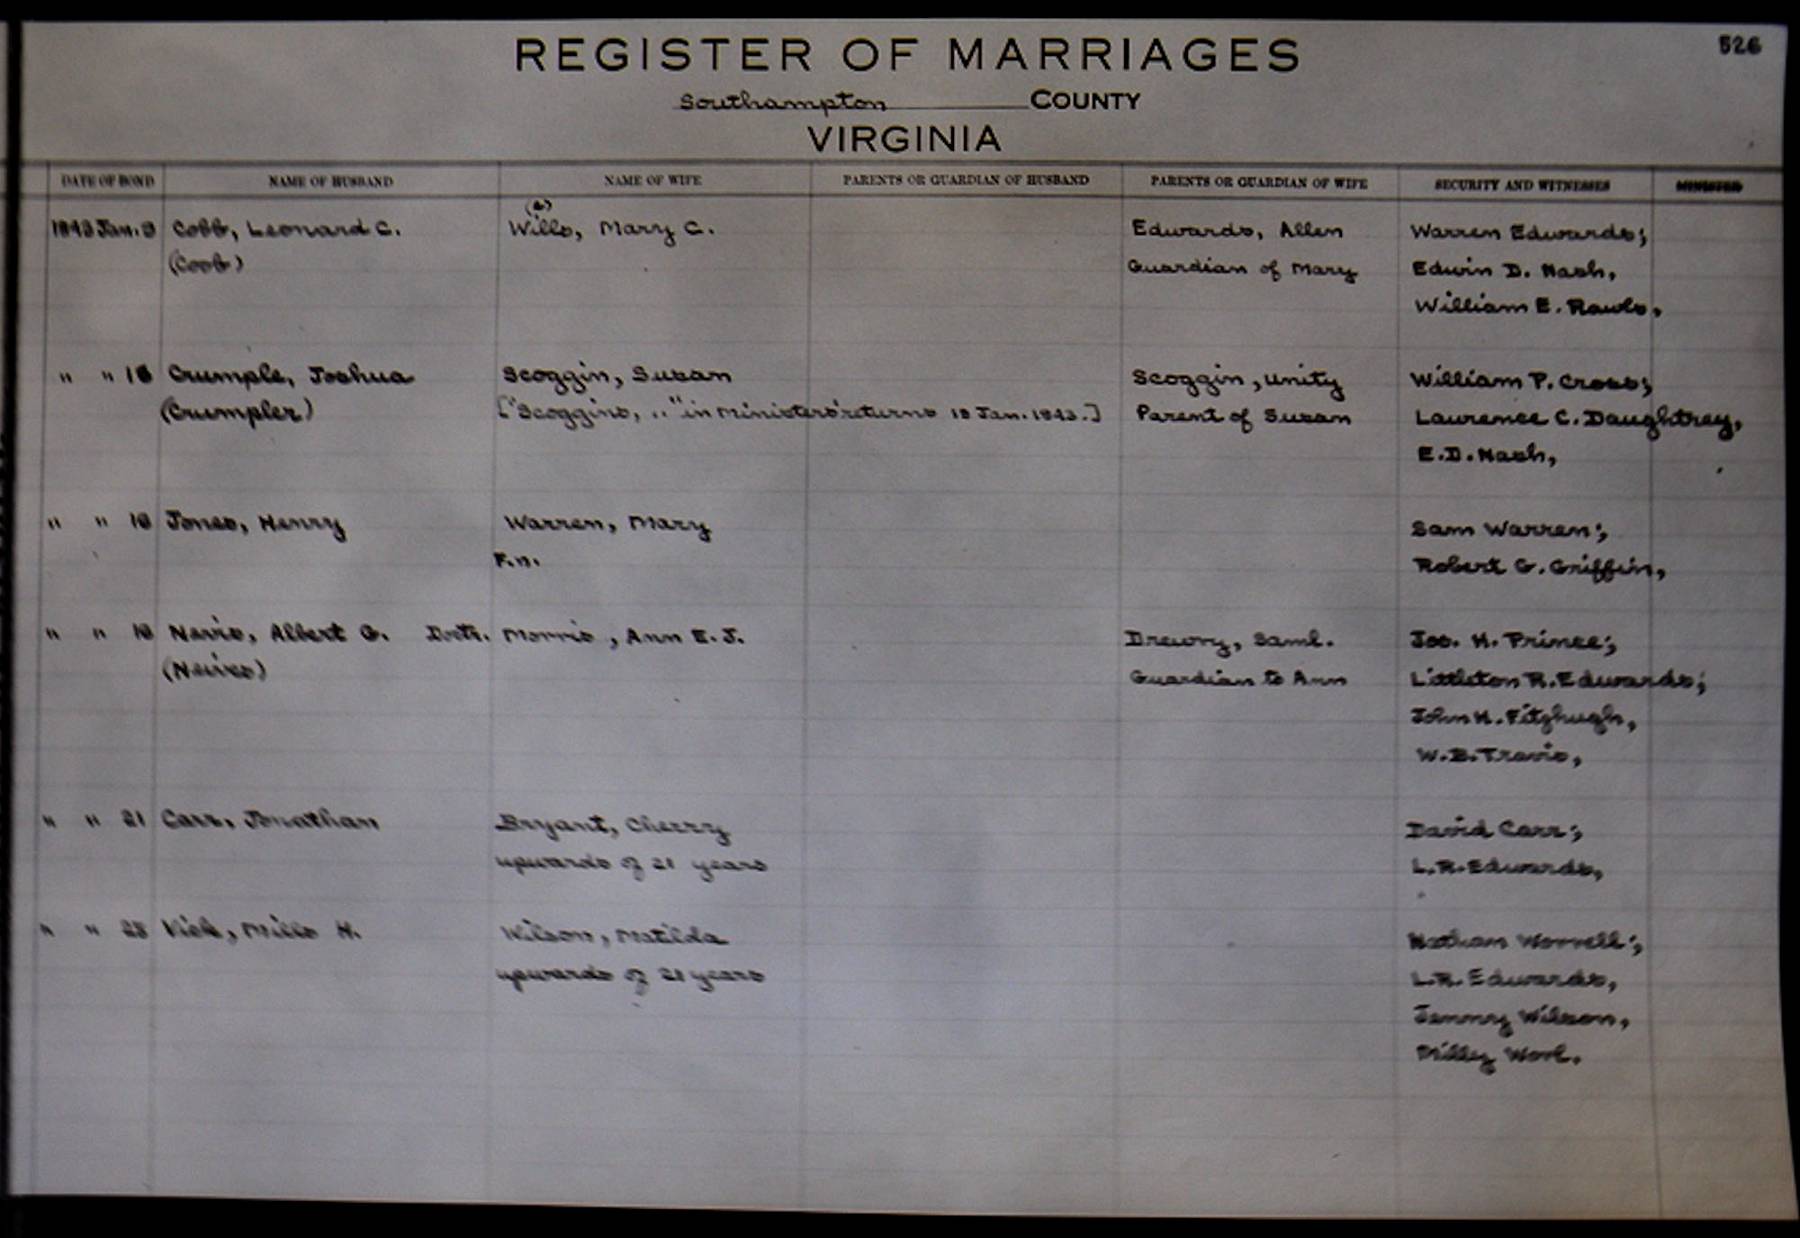 526
REGISTER OF MARRIAGES
Southampton COUNTY
VIRGINIA
DATE OF BOND NAME OF HUSBAND NAME OF WIFE PARENTS OR GUARDIAN OF HUSBAND PARENTS OR GUARDIAN OF WIFE SECURITY AND WITNESSES MINISTER
(e)
1843 Jan. Cobb, Leonard C. Wills, Mary C. Edwards, Allen Warren Edwards;
(Coob) Guardian of Mary Edwin D. Nash,
William E. Rawls,
" " Crumple, Joshua Scoggin, Susan Scoggin, Unity William P. Cross;
(Crumpler) ["Scoggins, .." in Ministers' returns 18 Jan. 1843.] Parent of Susan Laurence C. Daughtrey,
E.D. Nash,
" " Jones, Henry Warren, Mary Sam Warren;
F.n. Robert G. Griffin,
" " Albert G. Doctr. Morris, Ann E. J. Drewry, Saml. Jos. H. Prince;
Guardian to Ann Littleton R. Edwards;
John H. Fitzhugh,
W.B. Travis,
" " 21 Carr, Jonathan Bryant, Cherry David Carr;
upwards of 21 years L.R. Edwards,
" " Vick, Mills H. Wilson, Matilda Nathan Worrell;
upwards of 21 years L.R. Edwards,
Wilson,
Milley